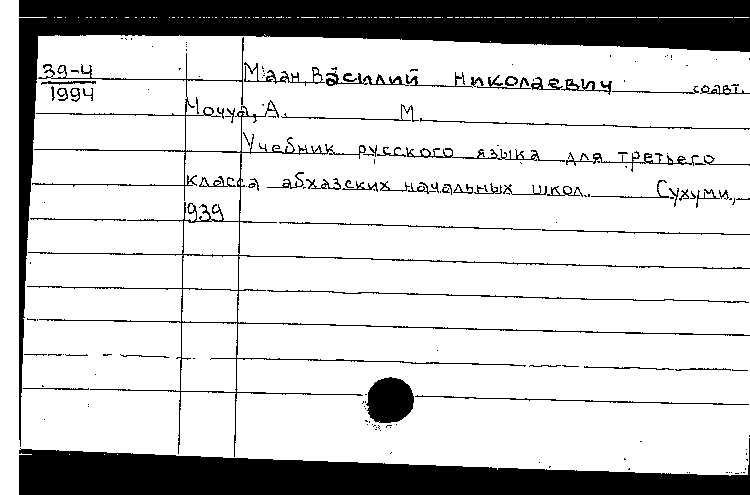 39-4
1994
Маан, Василий Николаевич соавт.
Мочуа, А. М.
Учебник русского языка для третьего
класса абхазских начальных школ. Сухуми,
1939